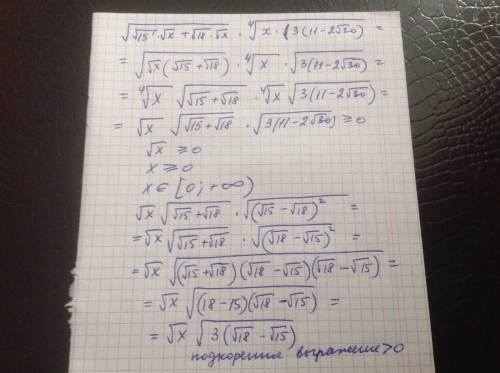 √(√15·√x + √18·√x) · ⁴√(x·(3(11-2√30) =
= √(√x(√15+√18)) · ⁴√x · √(3(11-2√30)) =
= ⁴√x √(√15+√18) · ⁴√x √(3(11-2√30)) =
= √x √(√15+√18) · √(3(11-2√30)) ≥ 0
√x ≥ 0
x ≥ 0
x ∈ [0; +∞)
√x √(√15+√18) · √((√15-√18)²) =
= √x √(√15+√18) · √((√18-√15)²) =
= √x √((√15+√18)(√18-√15)(√18-√15)) =
= √x √((18-15)(√18-√15)) =
= √x √(3(√18-√15))
подкоренное выражение > 0